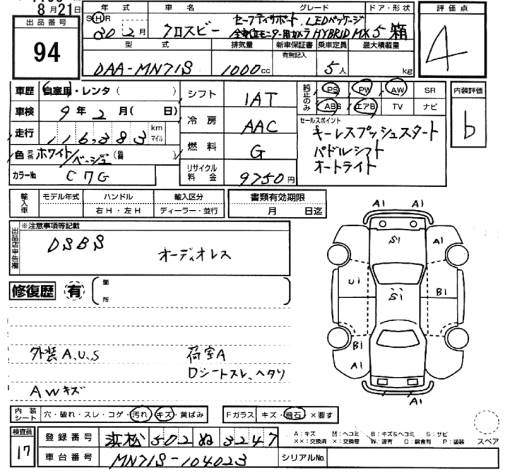 8月21日
出品番号
94
年式 車名 グレード ドア・形状
SHR
30年2月
クロスビー
セーフティサポート、LEDパッケージ
全方位モニター用カメラ HYBRID MX 5 箱
型式 排気量 新車保証書 乗車定員 最大積載量
有無記入
DAA-MN71S 1000cc 5人 kg
評価点
4
車歴 自家用・レンタ( )
車検 9年2月(日)
走行 116,383 km マイル
色 ホワイト/ベージュ(替)
カラーNo C7G
シフト IAT
冷房 AAC
燃料 G
リサイクル料金 9750円
純正のみ
PS PW AW SR
ABS エアB TV ナビ
セールスポイント
キーレスプッシュスタート
パドルシフト
オートライト
内装評価
b
輸入車 モデル年式 ハンドル 輸入区分 書類有効期限
右H・左H ディーラー・並行 月 日迄
※注意事項等記載
DSBS
オーディオレス
修復歴 有 箇所
外装A.U.S
荷室A
Dシートスレ、ヘタリ
AWキズ
A1 A1
S1
A1
U1 S1 B1
A1 B1
A1 A1
内装シート 穴・破れ・スレ・コゲ・汚れ・キズ・黄ばみ Fガラス キズ・飛石・×要す
検査員
17
登録番号 浜松 502 ぬ 3247
車台番号 MN71S-104023
シリアルNo.
A:キズ U:ヘコミ B:キズ&ヘコミ S:サビ
XX:交換済 X:要交換 W:波有 C:腐食有 P:塗装
スペア